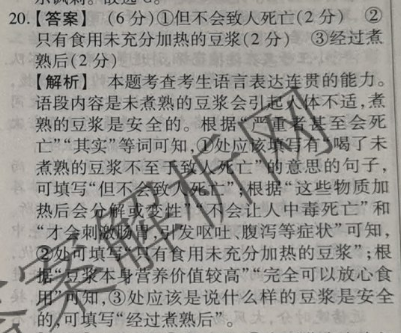 20.【答案】 (6分)①但不会致人死亡(2分) ②
只有食用未充分加热的豆浆(2分) ③经过煮
熟后(2分)
【解析】 本题考查考生语言表达连贯的能力。
语段内容是未煮熟的豆浆会引起人体不适,煮
熟的豆浆是安全的。根据“严重者甚至会死
亡”“其实”等词可知,①处应该填写有“喝了未
煮熟的豆浆不至于致人死亡”的意思的句子,
可填写“但不会致人死亡”;根据“这些物质加
热后会分解或变性”“不会让人中毒死亡”和
“才会刺激肠胃,引发呕吐、腹泻等症状”可知,
②处可填写“只有食用未充分加热的豆浆”;根
据“豆浆本身营养价值较高”“完全可以放心食
用”可知,③处应该是说什么样的豆浆是安全
的,可填写“经过煮熟后”。
答案解析网